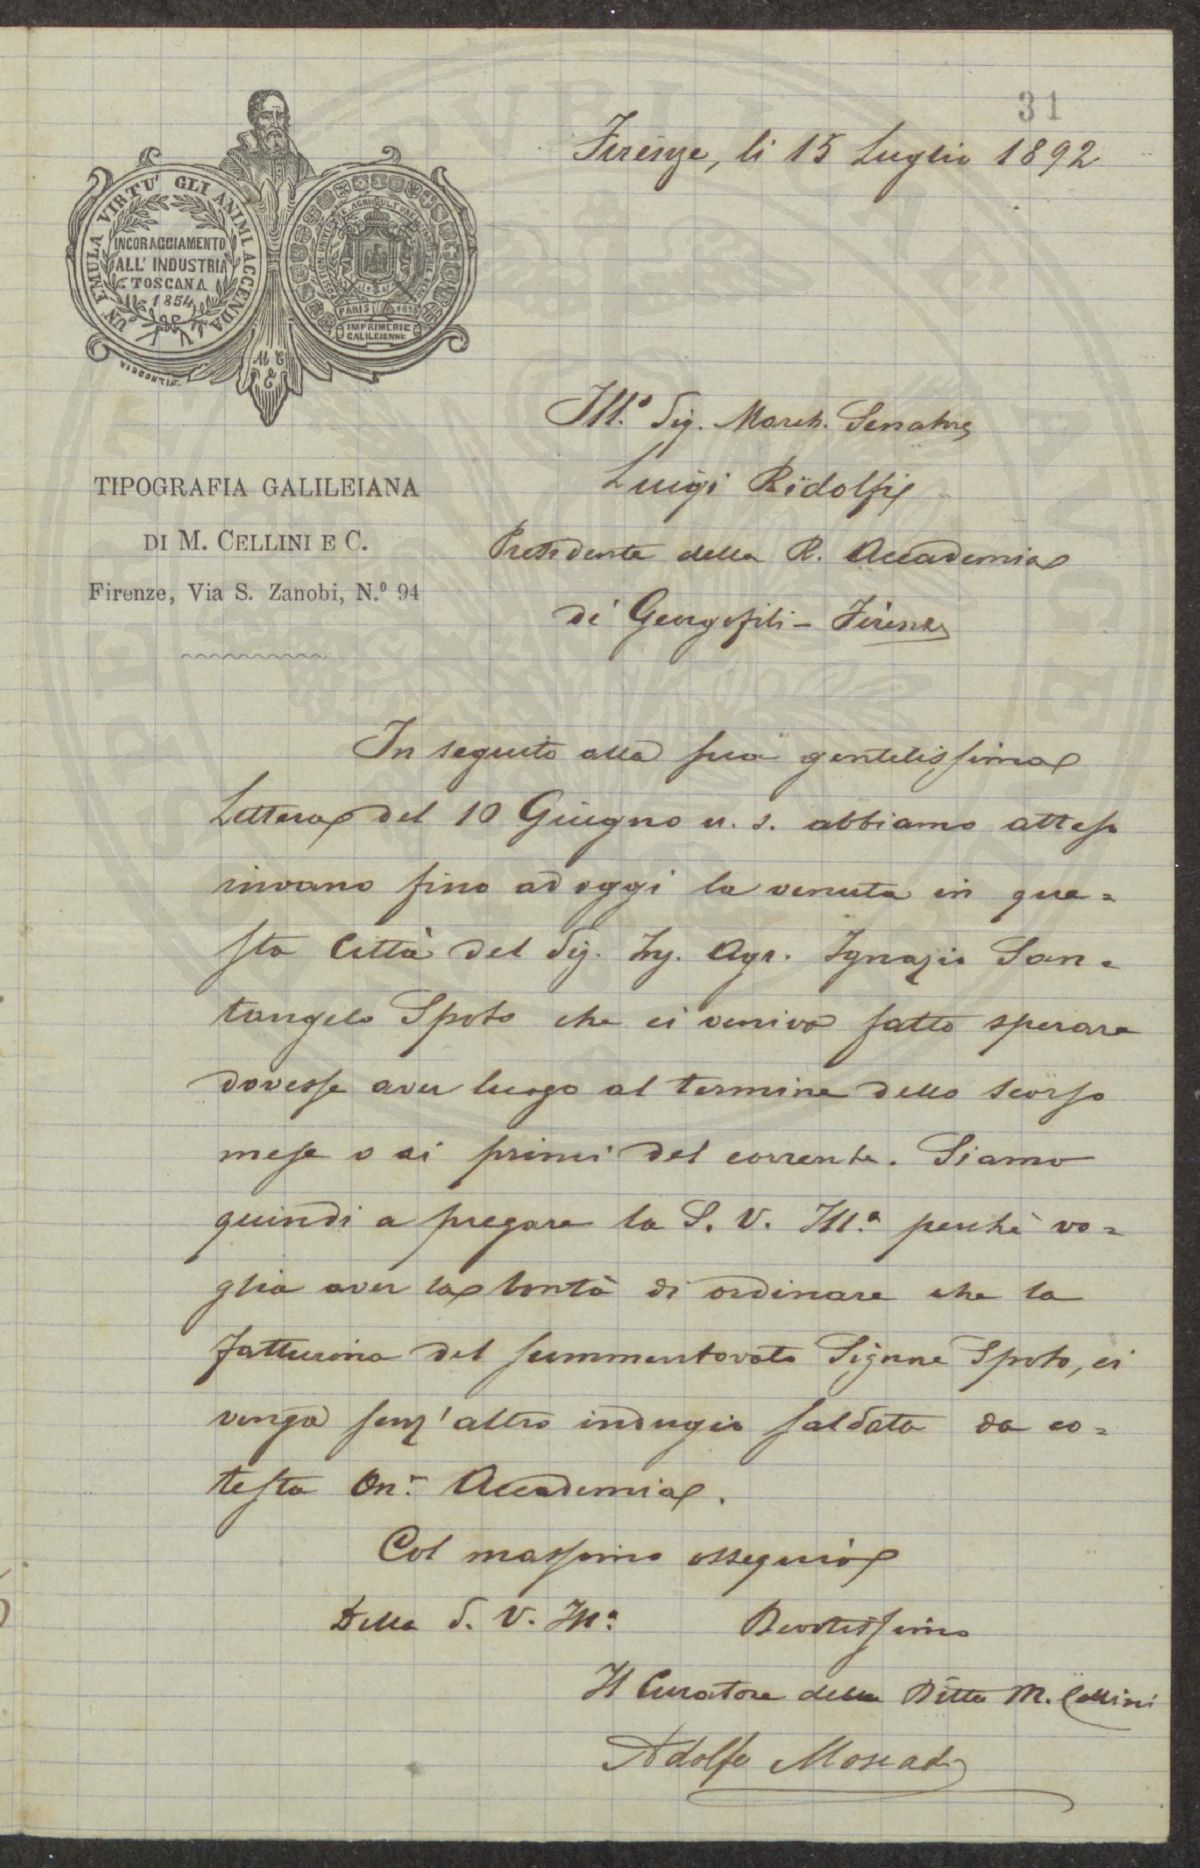 31
Firenze, li 15 Luglio 1892
UN EMULA VIRTU' GLI ANIMI ACCENDA
INCORAGGIAMENTO
ALL' INDUSTRIA
TOSCANA
1854
AGRICULTURE
PARIS
IMPRIMERIE
GALILEIENNE
M C
& C
TIPOGRAFIA GALILEIANA
DI M. CELLINI E C.
Firenze, Via S. Zanobi, N.º 94
Ill.º Sig. March. Senatore
Luigi Ridolfi
Presidente della R. Accademia
di Georgofili - Firenze
In seguito alla sua gentilissima
Lettera del 10 Giugno u. s. abbiamo atteso
invano fino ad oggi la venuta in que=
sta Città del Sig. Ing. Agr. Ignazio San=
tangelo Spoto che ci veniva fatto sperare
dovesse aver luogo al termine dello scorso
mese o ai primi del corrente. Siamo
quindi a pregare la S. V. Ill.ª perchè vo=
glia aver la bontà di ordinare che la
fatturina del summentovato Signore Spoto, ci
venga senz'altro indugio saldata da co=
testa On. Accademia.
Col massimo ossequio
Della S. V. Ill.ª Devotissimo
Il Curatore della Ditta M. Cellini
Adolfo